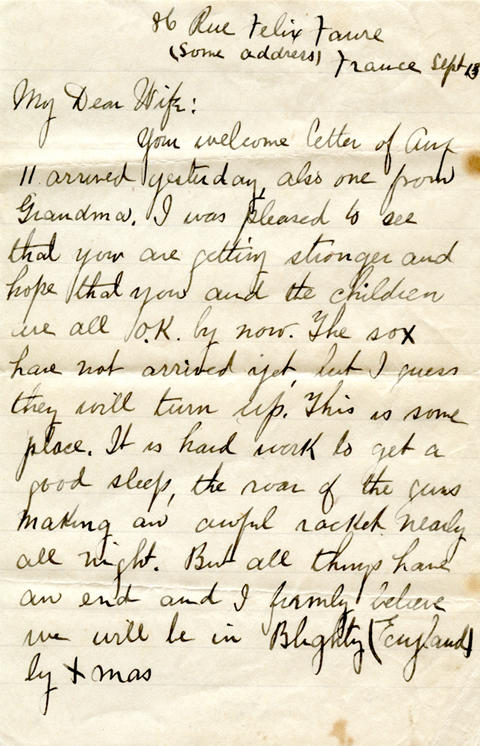 86 Rue Felix Faure
(Some address)
France Sept 13
My Dear Wife:
Your welcome letter of Aug
11 arrived yesterday, also one from
Grandma. I was pleased to see
that you are getting stronger and
hope that you and the children
are all O.K. by now. The sox
have not arrived yet, but I guess
they will turn up. This is some
place. It is hard work to get a
good sleep, the roar of the guns
making an awful racket nearly
all night. But all things have
an end and I firmly believe
we will be in Blighty (England)
by Xmas